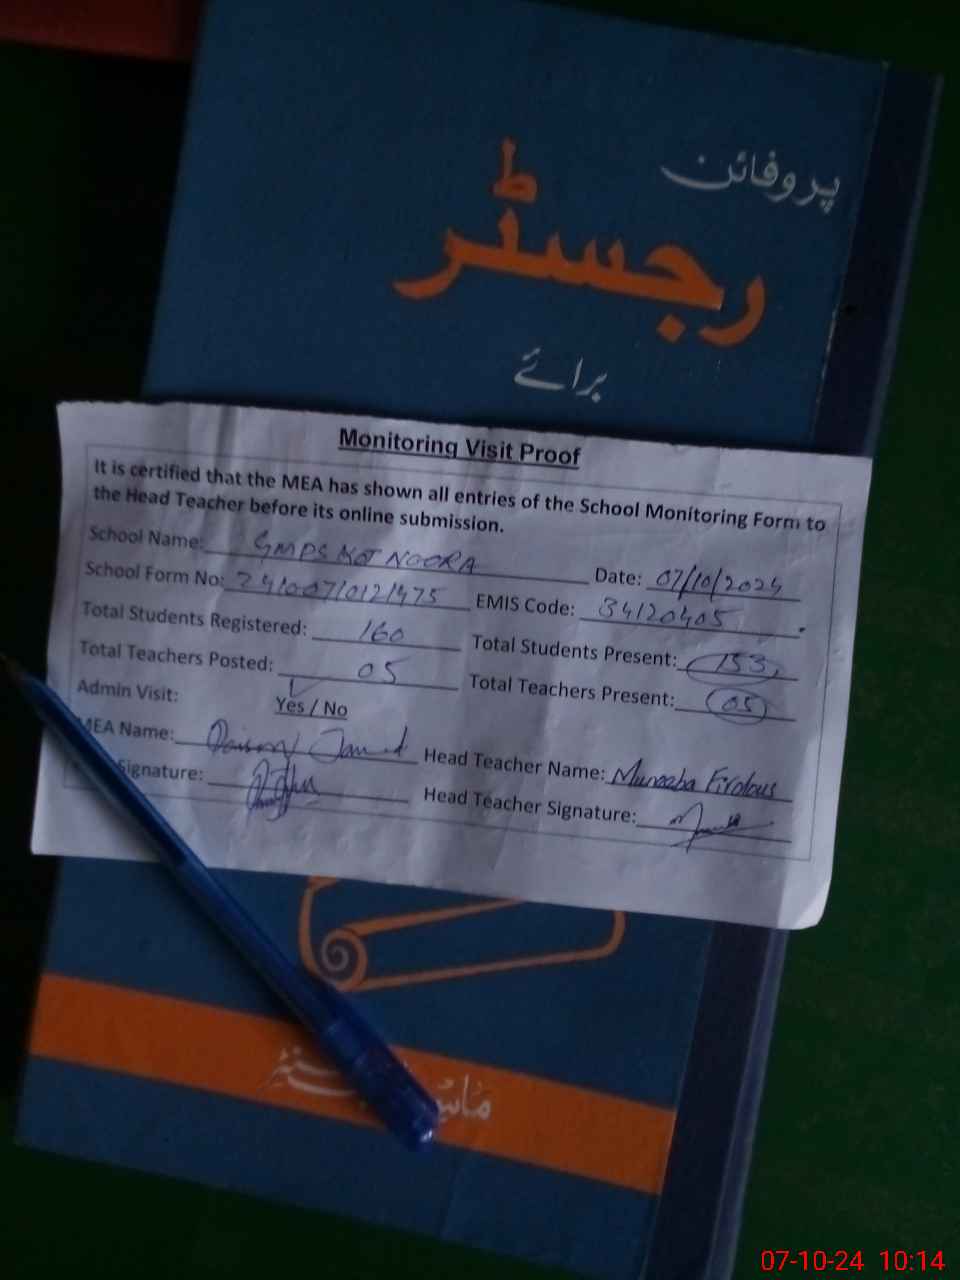 پروفائن
رجسٹر
برائے
Monitoring Visit Proof
It is certified that the MEA has shown all entries of the School Monitoring Form to
the Head Teacher before its online submission.
School Name: GMPS KOT NOORA Date: 07/10/2024
School Form No: EMIS Code: 34120405
Total Students Registered: 160 Total Students Present: 153
Total Teachers Posted: 05 Total Teachers Present: 05
Admin Visit: Yes / No
MEA Name: Head Teacher Name: Muneeba Firdous
Signature: Head Teacher Signature:
07-10-24 10:14